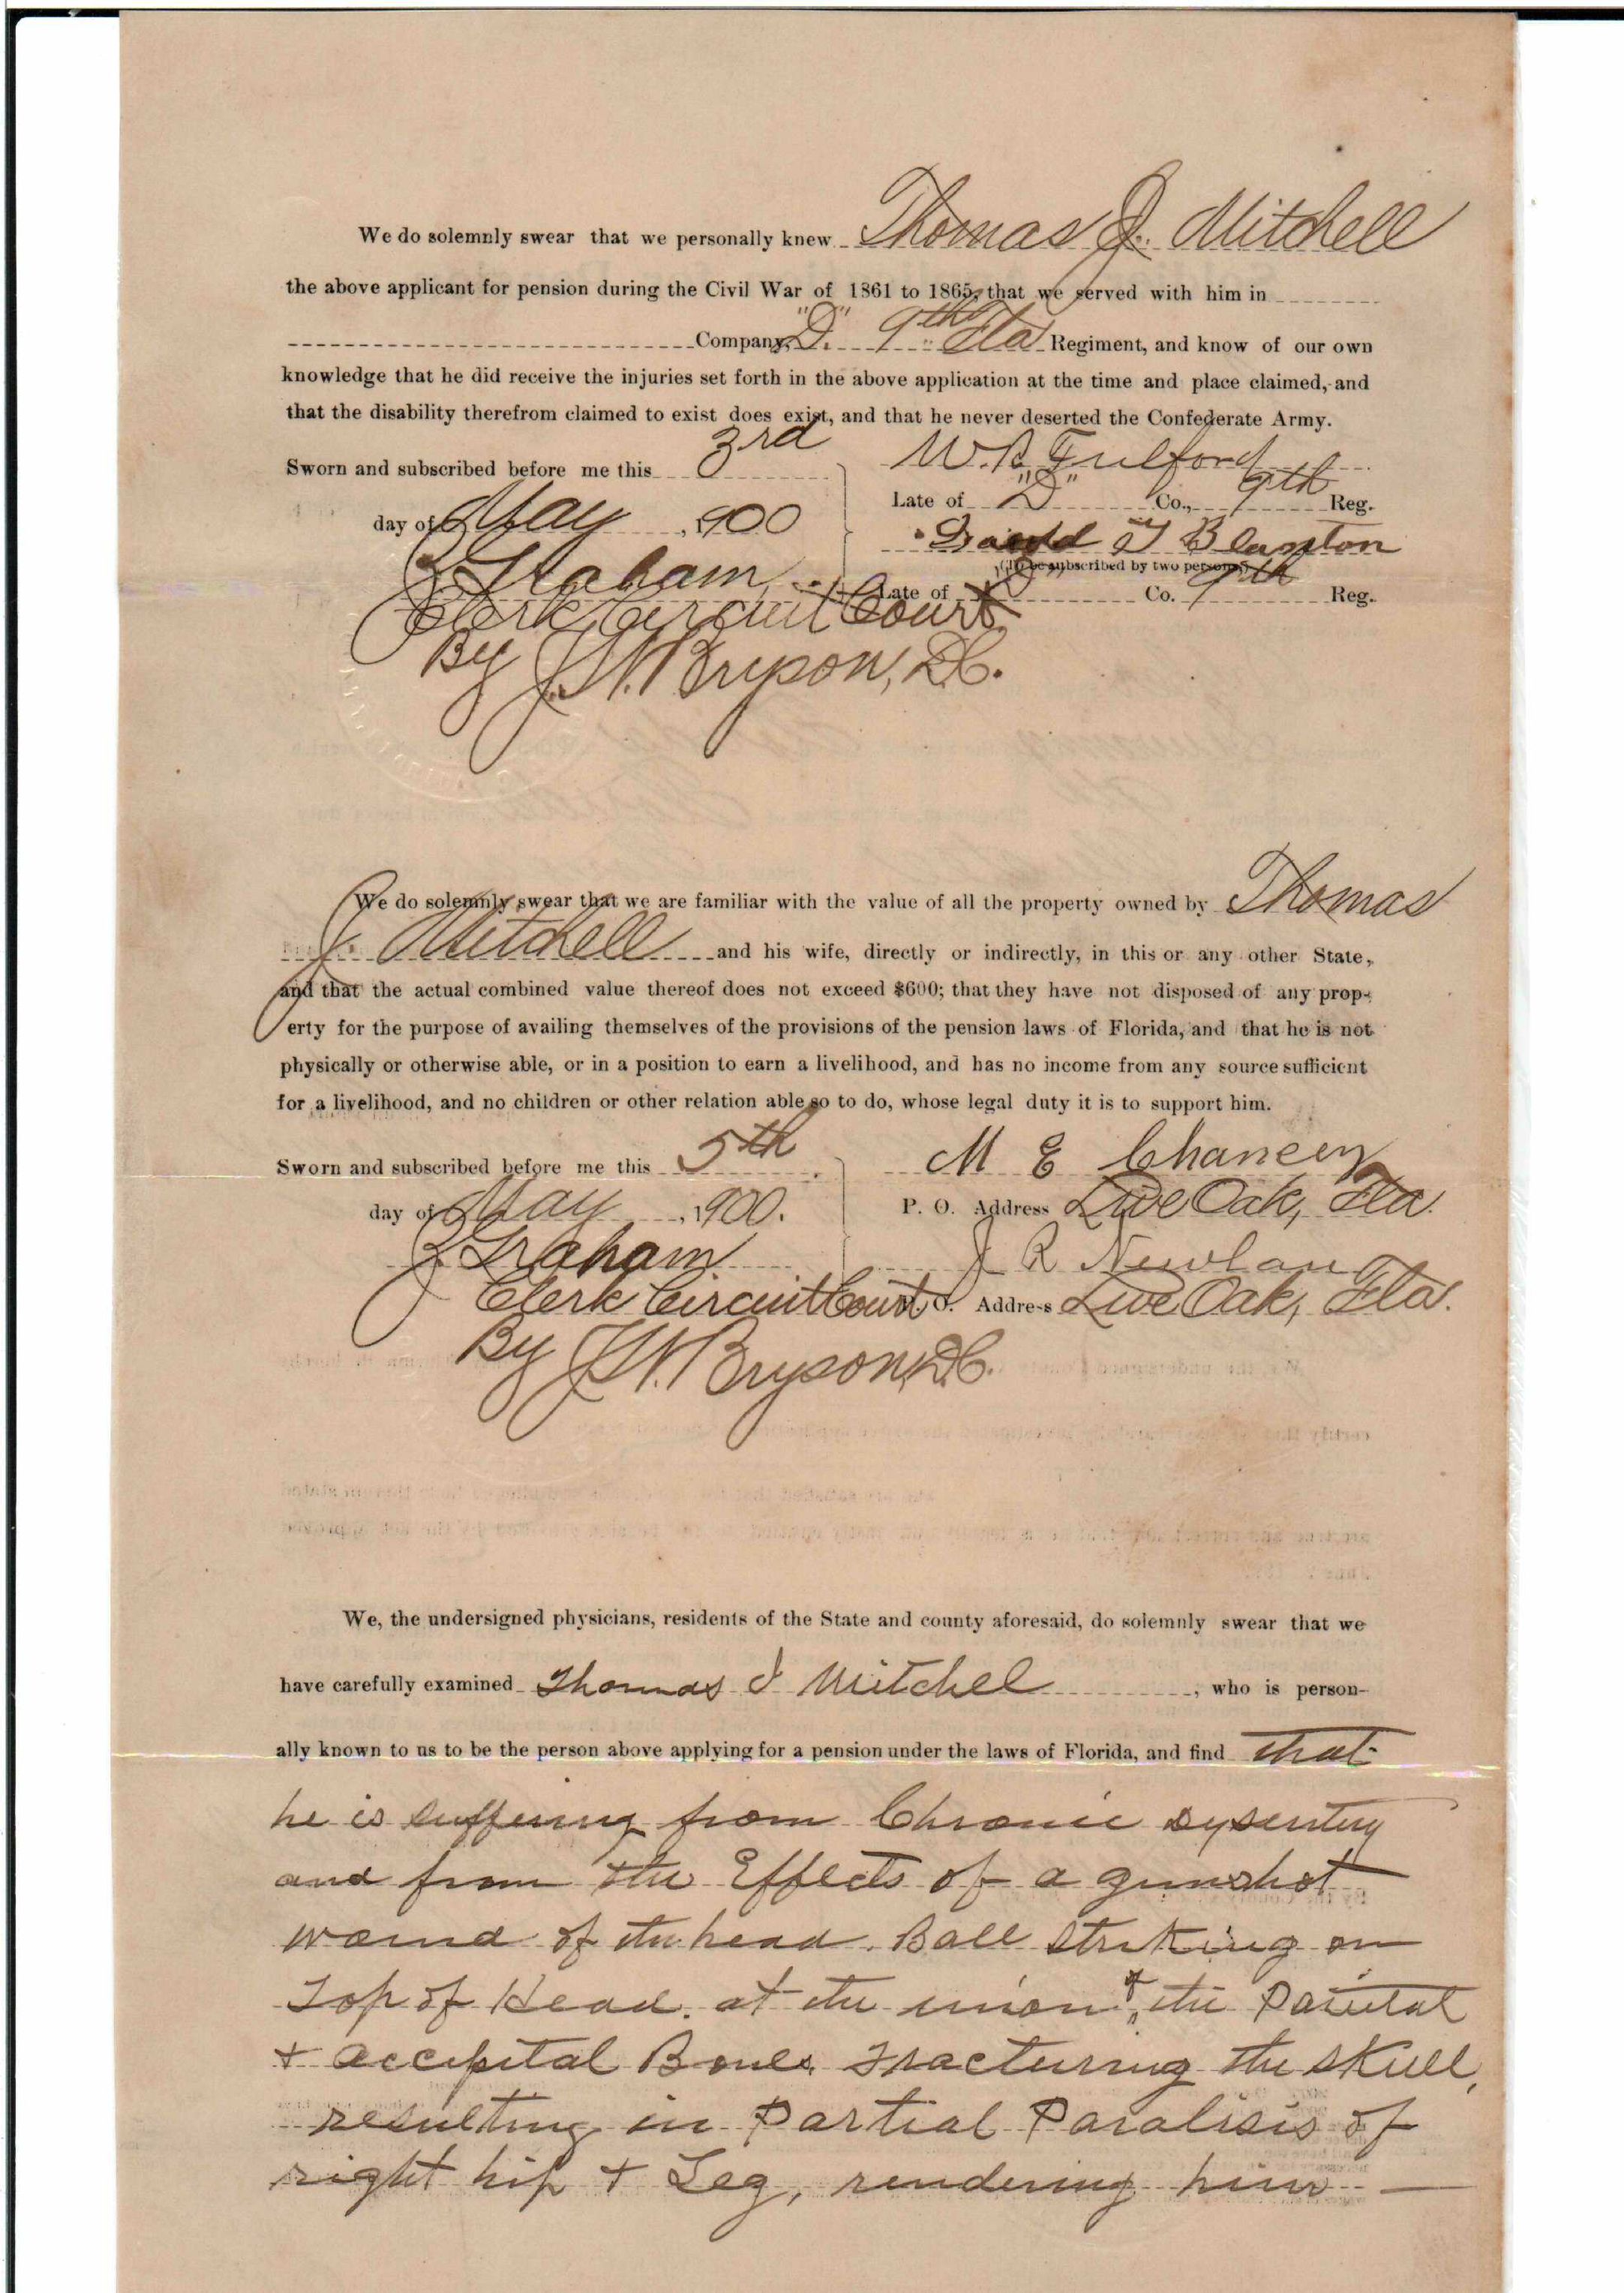 We do solemnly swear that we personally knew Thomas J. Mitchell
the above applicant for pension during the Civil War of 1861 to 1865, that we served with him in
Company, "D." 9th Fla Regiment, and know of our own
knowledge that he did receive the injuries set forth in the above application at the time and place claimed, and
that the disability therefrom claimed to exist does exist, and that he never deserted the Confederate Army.
Sworn and subscribed before me this 3rd
day of May, 1900
Graham
Clerk Circuit Court
By Bryson, D.C.
W. R. Fulford
Late of "D" Co., 9th Reg.
Blanton
(To be subscribed by two persons.)
Late of "D" Co. 9th Reg.
We do solemnly swear that we are familiar with the value of all the property owned by Thomas
J. Mitchell and his wife, directly or indirectly, in this or any other State,
and that the actual combined value thereof does not exceed $600; that they have not disposed of any prop-
erty for the purpose of availing themselves of the provisions of the pension laws of Florida, and that he is not
physically or otherwise able, or in a position to earn a livelihood, and has no income from any source sufficient
for a livelihood, and no children or other relation able so to do, whose legal duty it is to support him.
Sworn and subscribed before me this 5th
day of May, 1900.
Graham
Clerk Circuit Court
By Bryson, D.C.
M E Chancey
P. O. Address Live Oak, Fla.
J R Newlan
P. O. Address Live Oak, Fla.
We, the undersigned physicians, residents of the State and county aforesaid, do solemnly swear that we
have carefully examined Thomas J Mitchel, who is person-
ally known to us to be the person above applying for a pension under the laws of Florida, and find that
he is suffering from Chronic Dysentery
and from the Effects of a gunshot
wound of the head. Ball striking on
Top of Head. at the union of the Parietal
+ accipital Bones fracturing the skull,
resulting in Partial Paralisis of
right hip + Leg, rendering him